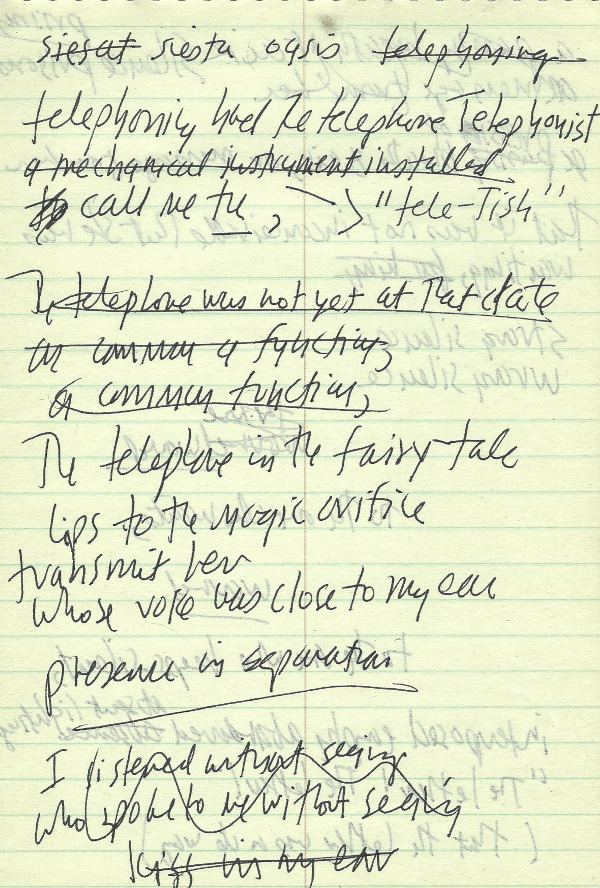 siesat siesta oasis telephoning
telephoning had The telephone Telephonist
a mechanical instrument installed
to call me the, > "tele-Tish"
The telephone was not yet at that date
as common a function,
a common function,
The telephone in the fairy tale
lips to the magic orifice
transmit her
whose voice was close to my ear
presence in separation
I listened without seeing
who spoke to me without seeing
kiss in my ear